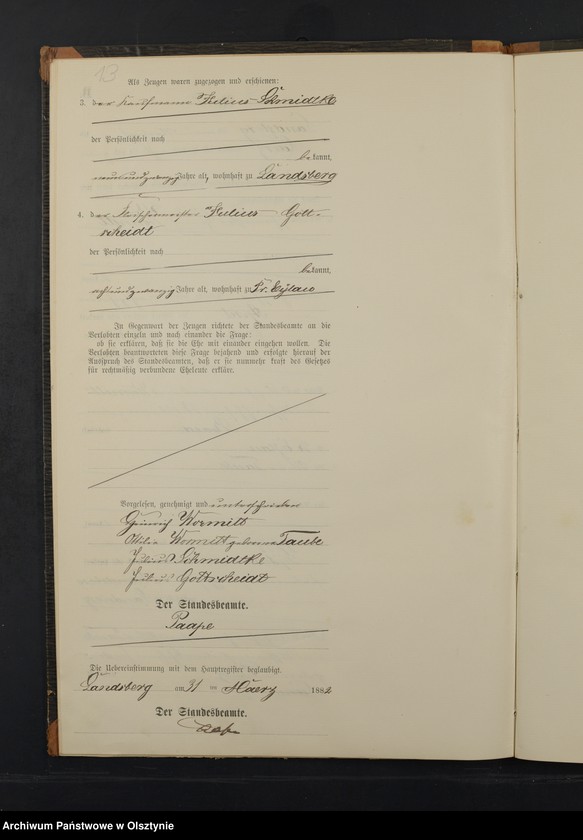 13
Als Zeugen waren zugezogen und erschienen:
3. der Kaufmann Julius Schmidtke
der Persönlichkeit nach
bekannt,
neunundzwanzig Jahre alt, wohnhaft zu Landsberg
4. der Julius Gott-
scheidt
der Persönlichkeit nach
bekannt,
achtundzwanzig Jahre alt, wohnhaft zu Pr. Eylau
In Gegenwart der Zeugen richtete der Standesbeamte an die
Verlobten einzeln und nach einander die Frage:
ob sie erklären, daß sie die Ehe mit einander eingehen wollen. Die
Verlobten beantworteten diese Frage bejahend und erfolgte hierauf der
Ausspruch des Standesbeamten, daß er sie nunmehr kraft des Gesetzes
für rechtmäßig verbundene Eheleute erkläre.
Vorgelesen, genehmigt und unterschrieben
Heinrich Wormitt
Wormitt geborene Taube
Julius Schmidtke
Julius Gottscheidt
Der Standesbeamte.
Paape
Die Uebereinstimmung mit dem Hauptregister beglaubigt.
Landsberg am 31 ten Maerz 1882
Der Standesbeamte.
Paape
Archiwum Państwowe w Olsztynie